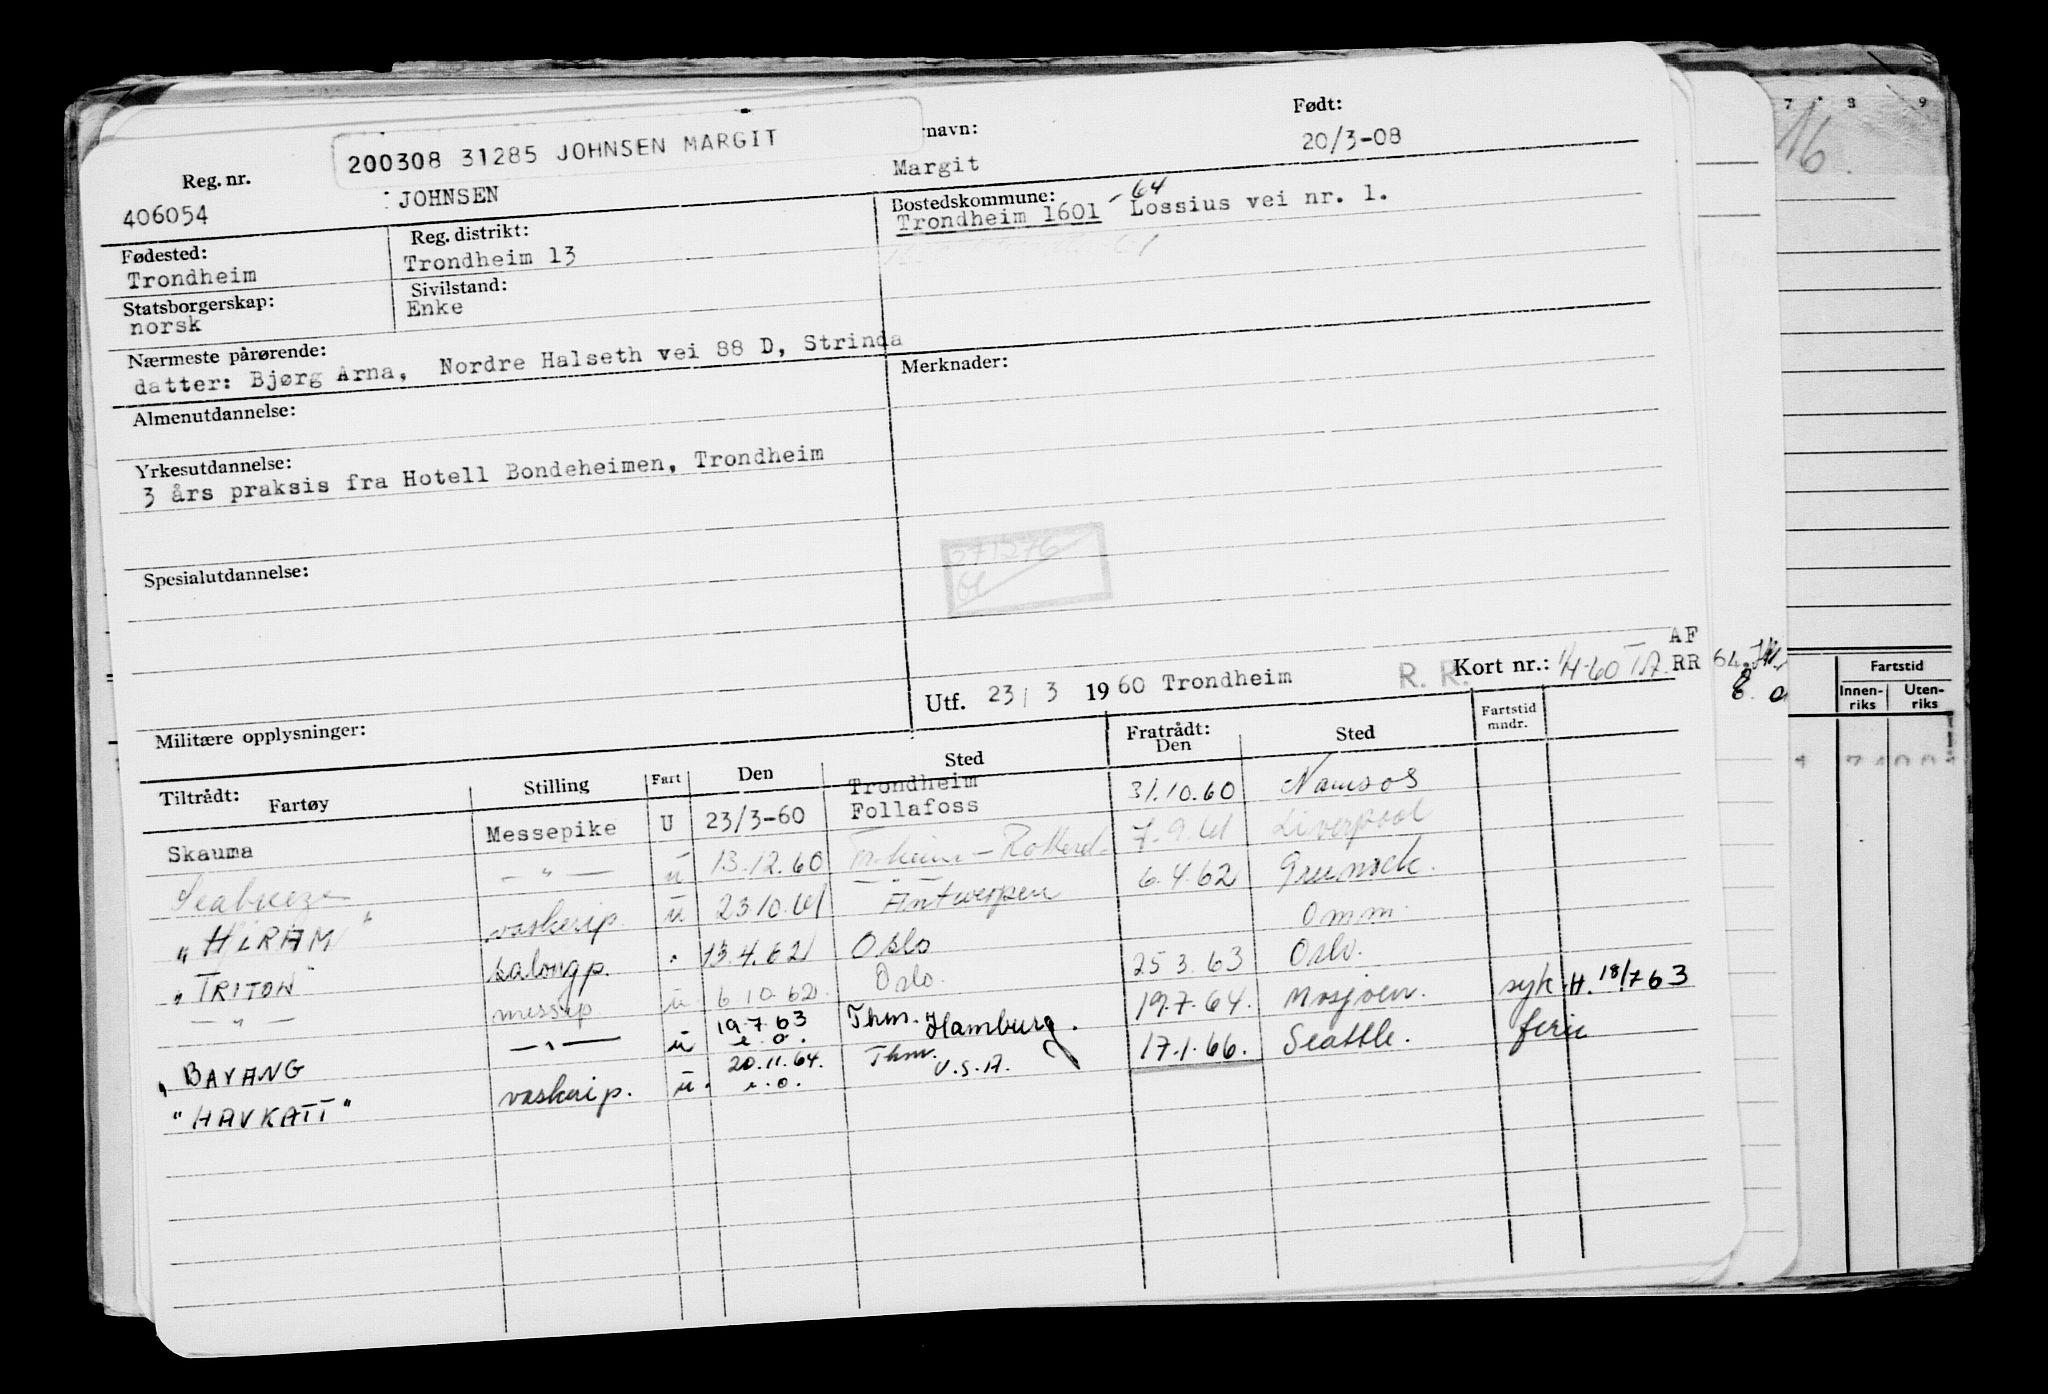 200308 31285 JOHNSEN MARGIT
Reg. nr. 406054
JOHNSEN
rnavn: Margit
Født: 20/3-08
Fødested: Trondheim
Reg. distrikt: Trondheim 13
Bostedskommune: -64
Trondheim 1601 Lossius vei nr. 1.
Statsborgerskap: norsk
Sivilstand: Enke
Nærmeste pårørende:
datter: Bjørg Arna, Nordre Halseth vei 88 D, Strinda
Merknader:
Almenutdannelse:
Yrkesutdannelse:
3 års praksis fra Hotell Bondeheimen, Trondheim
271276
Spesialutdannelse:
AF
Utf. 23/ 3 1960 Trondheim R. R. Kort nr.: 1/4-60 RR 64.
Militære opplysninger:
Tiltrådt: Fartøy Stilling Fart Den Sted Fratrådt: Den Sted Fartstid mndr.
Skauma Messepike U 23/3-60 Trondheim Follafoss 31.10.60 Namsos
Seabreeze - " - u 13.12.60 7.9.61 Liverpool
"HIRAM" vaskerip. u 23.10.61 Antwerpen 6.4.62 Greenock.
"TRITON" salongp. . 13.4.62 Oslo Omm.
- " - messep. u 6.10.62 Oslo. 25.3.63 Oslo.
"BAYANG - " - u 19.7.63 e.o. Thm. Hamburg. 19.7.64. Mosjøen. syk H. 18/7 63
"HAVKATT" vaskerip. u. 20.11.64. e.o. Thm. U.S.A. 17.1.66. Seattle. ferie
7 8 9
16.
Fartstid
Innen-riks Uten-riks